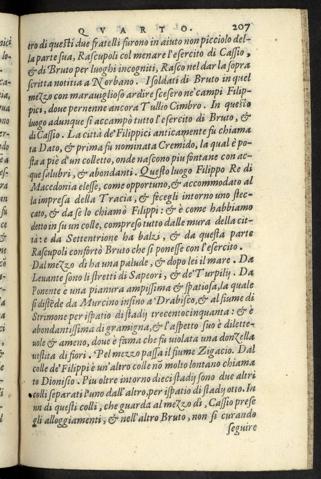 QVARTO. 207
tro di questi due fratelli furono in aiuto non picciolo del-
la parte sua, Rascupoli col menare l'esercito di Cassio,
& di Bruto per luoghi incogniti, Rasco nel dar la sopra
scritta notitia a Norbano. I soldati di Bruto in quel
mezzo con marauiglioso ardire scesero ne' campi Filip-
pici, doue peruenne ancora Tullio Cimbro. In questo
luogo adunque si accampò tutto l'esercito di Bruto, &
di Cassio. La città de' Filippici anticamente fu chiama
ta Dato, & prima fu nominata Cremido, la qual è po-
sta a piè d'un colletto, onde nascono piu fontane con ac-
que salubri, & abondanti. Questo luogo Filippo Re di
Macedonia elesse, come opportuno, & accommodato al
la impresa della Tracia, & fecegli intorno uno stec-
cato, & da se lo chiamò Filippi: & è come habbiamo
detto in su un colle, compreso tutto dalle mura della cit-
tà: e da Settentrione ha balzi, & da questa parte
Rascupoli confortò Bruto che si ponesse con l'esercito.
Dal mezzo dì ha una palude, & dopo lei il mare. Da
Leuante sono li stretti di Sapeori, & de' Turpily. Da
Ponente è una pianura ampissima & spatiosa, la quale
si distēde da Murcino insino a Drabisco, & al fiume di
Strimone per ispatio di stadij trecentocinquanta: & è
abondantissima di gramigna, & l'aspetto suo è dilette-
uole & ameno, doue è fama che fu uiolata una donzella
uestita di fiori. Pel mezzo passa il fiume Zigacio. Dal
colle de' Filippi è un'altro colle nō molto lontano chiama
to Dionisio. Piu oltre intorno dieci stadij sono due altri
colli separati l'uno dall'altro, per ispatio di stadij otto. In
un di questi colli, che guarda al mezzo dì, Cassio prese
gli alloggiamenti, & nell'altro Bruto, non si curando
seguire